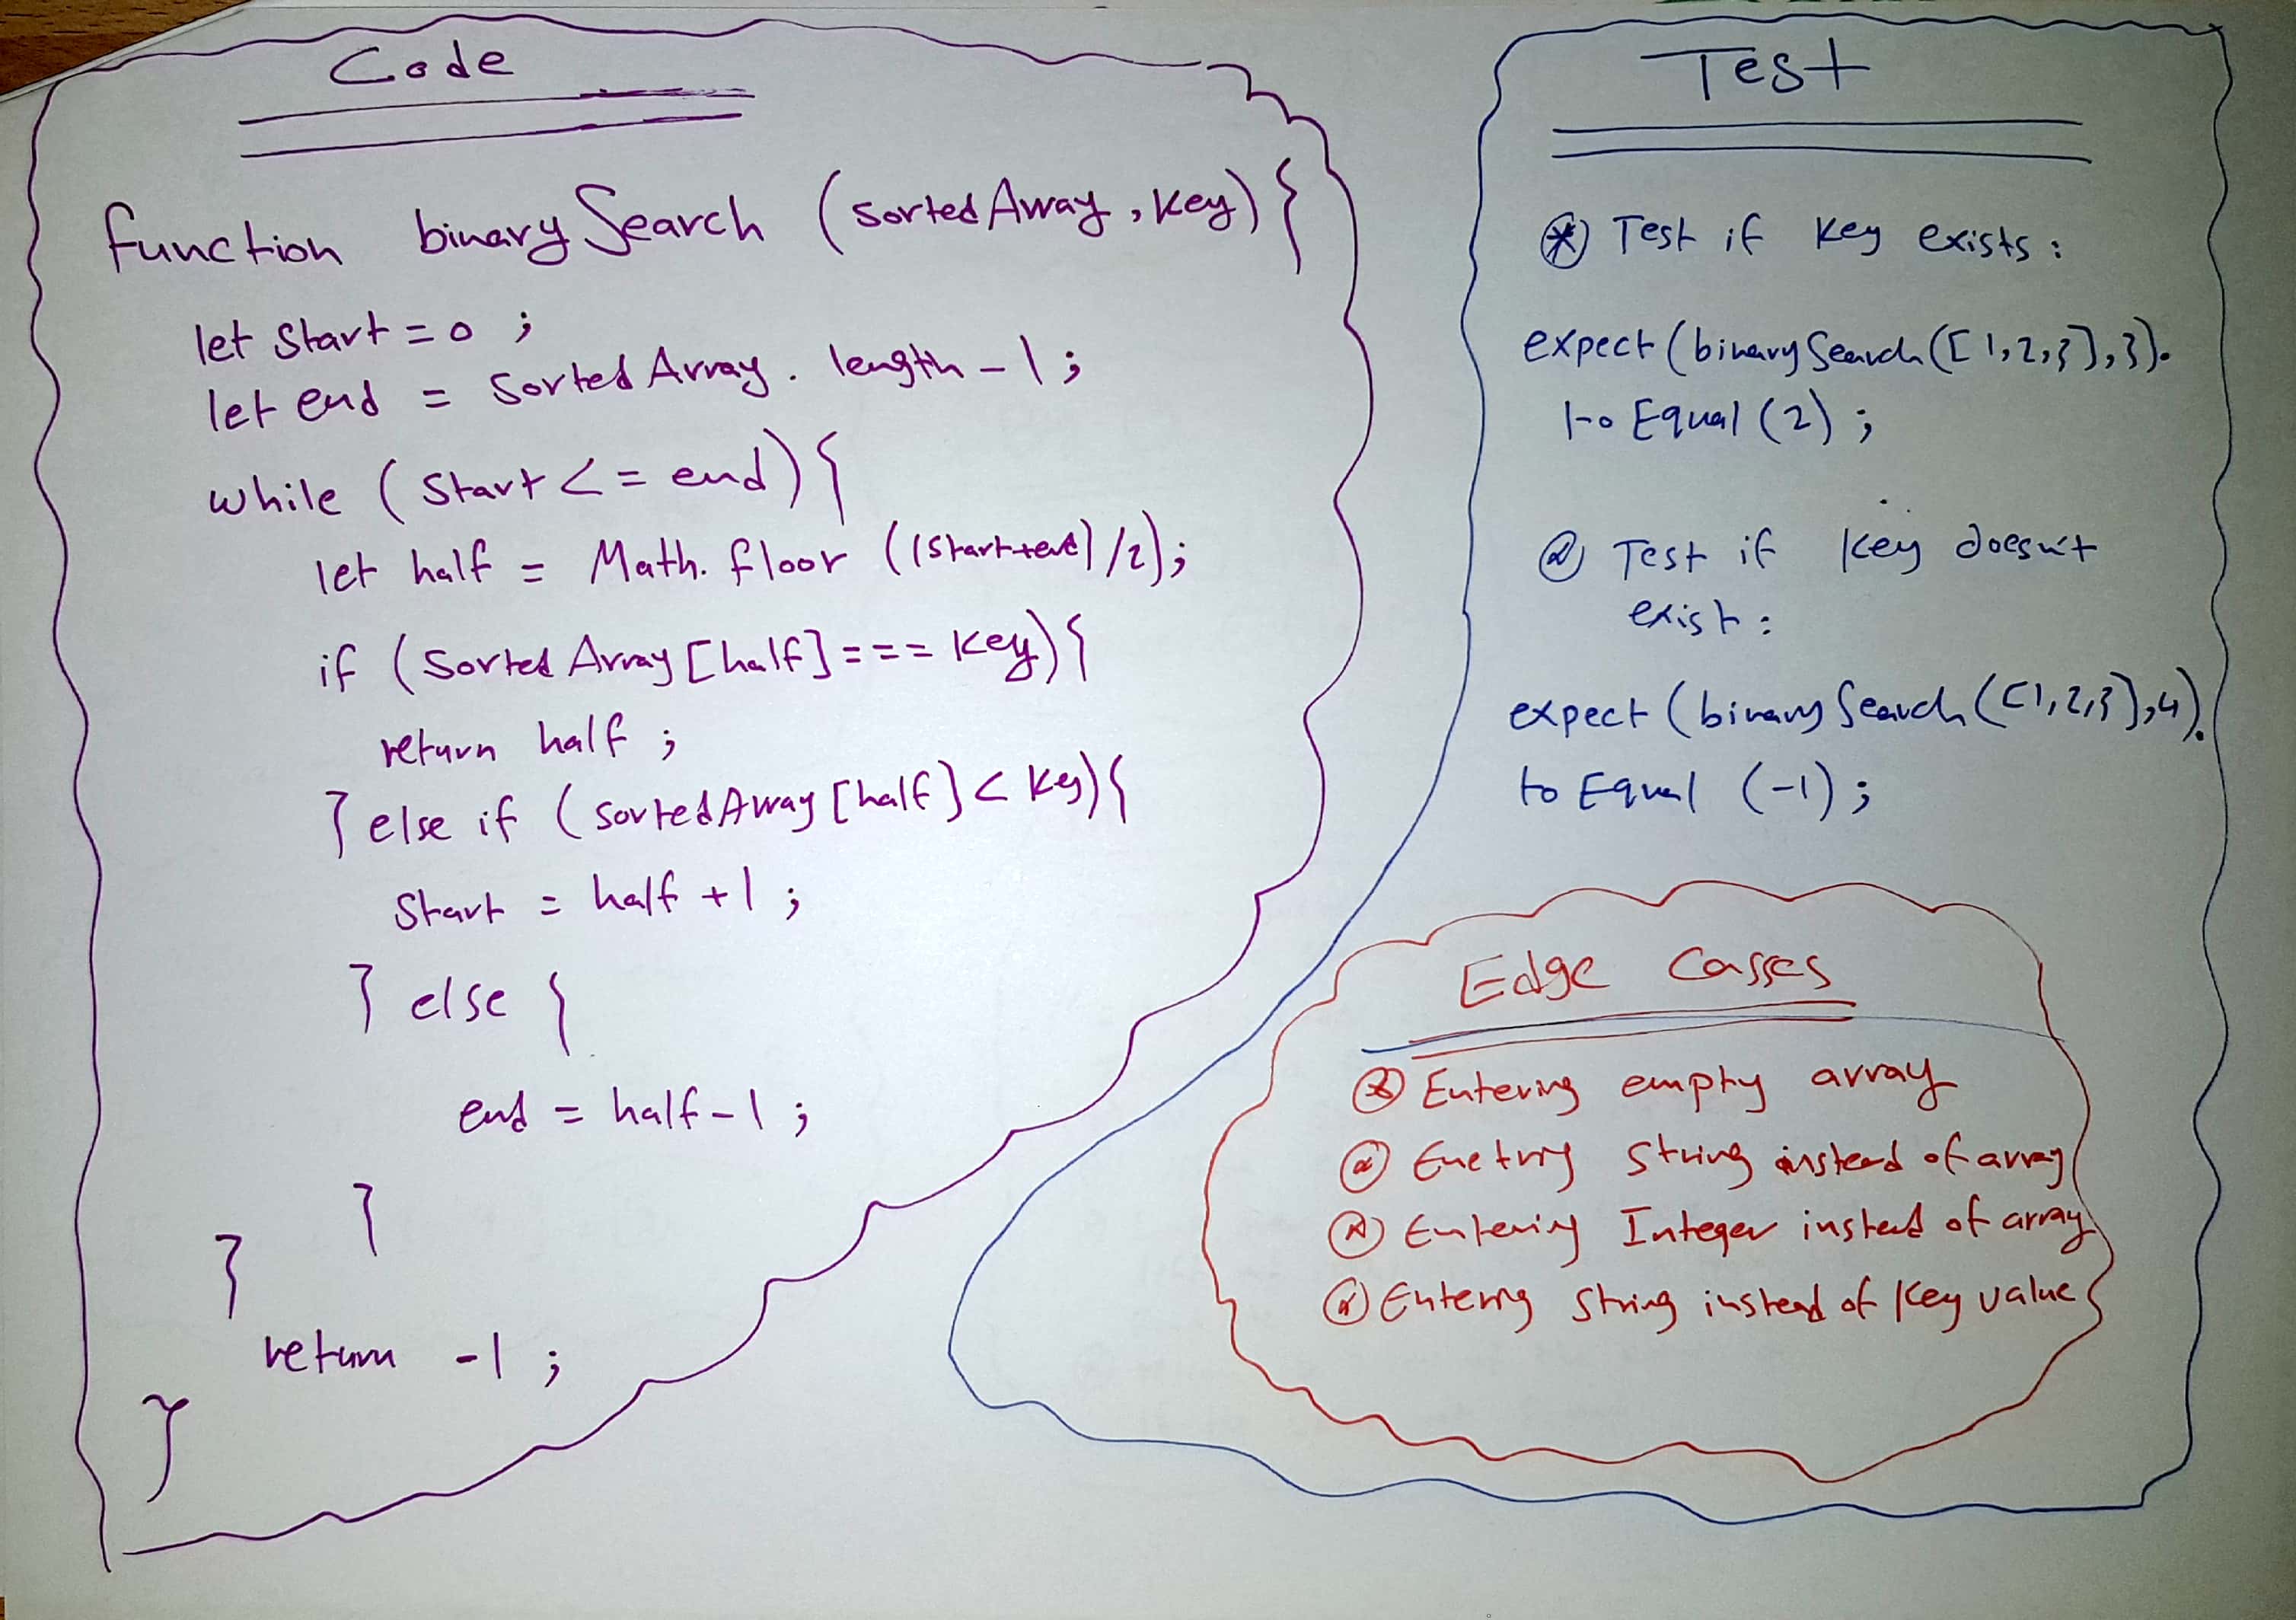 Code
function binarySearch (sortedArray, key) {
let start = 0 ;
let end = sortedArray . length - 1 ;
while ( start <= end) {
let half = Math. floor ((start+end) /2);
if ( sortedArray [half] === key) {
return half ;
} else if ( sortedArray [half] < key) {
start = half + 1 ;
} else {
end = half - 1 ;
}
}
return -1 ;
}
Test
Test if key exists :
expect (binarySearch ([1,2,3],3).
toEqual (2) ;
Test if key doesn't
exist :
expect (binarySearch ([1,2,3],4).
toEqual (-1) ;
Edge Casses
Entering empty array
String instead of array
Entering Integer instead of array
Entering string instead of key value